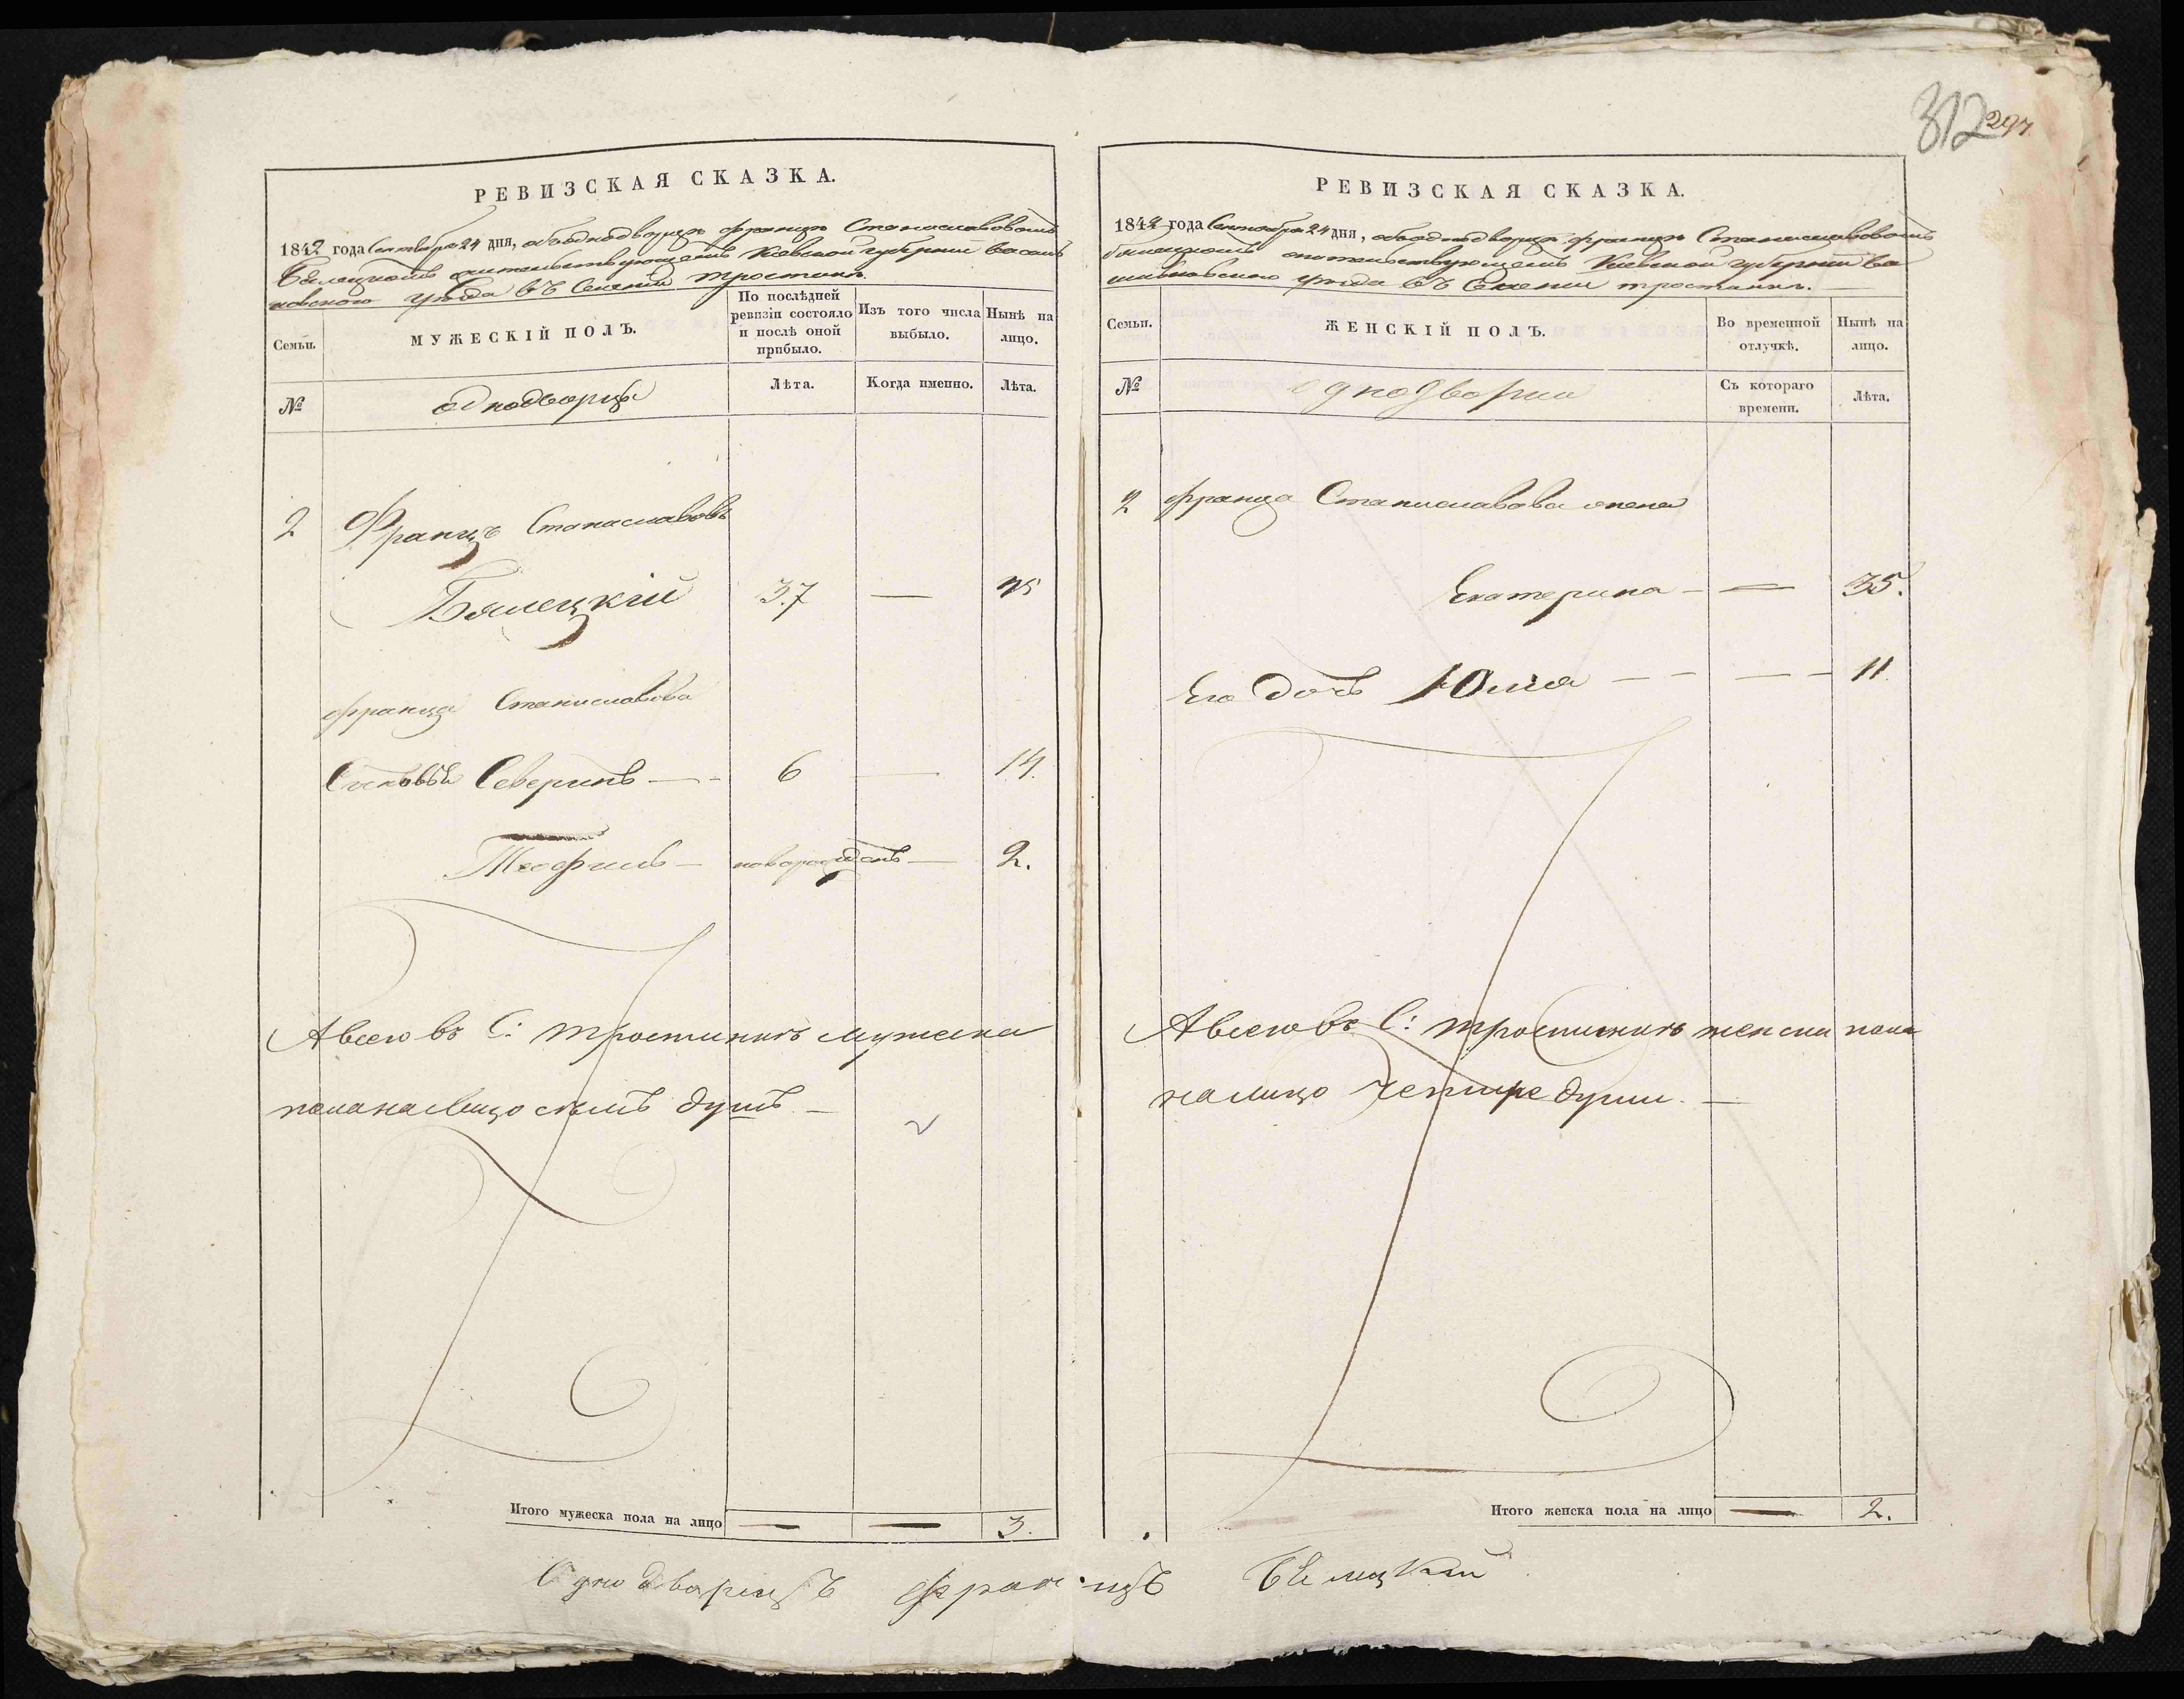 312 297.
РЕВИЗСКАЯ СКАЗКА.
1842 года Сентября 24 дня, объ однодворце Францъ Станиславовомъ
Бялецкомъ жительствующемъ Киевской губернии Василь
ковского уезда въ Селении Тростинки.
Семьи.
МУЖЕСКІЙ ПОЛЪ.
По послѣдней ревизіи состояло и послѣ оной прибыло.
Изъ того числа выбыло.
Нынѣ на лицо.
№
однодворцы
Лѣта.
Когда именно.
Лѣта.
2 Францъ Станиславовъ
Бялецкій 37 — 45
Франца Станиславова
Сыновья Северинъ — 6 — 14.
Теофилъ — новорожденъ — 2.
А всего въ С: Тростинкѣ мужеска
пола налицо семь душъ —
Итого мужеска пола на лицо — — 3.
РЕВИЗСКАЯ СКАЗКА.
1842 года Сентября 24 дня, объ однодворце Францъ Станиславовомъ
Бялецкомъ жительствующемъ Киевской губернии Ва
сильковского уезда въ Селении Тростинки. —
Семьи.
ЖЕНСКІЙ ПОЛЪ.
Во временной отлучкѣ.
Нынѣ на лицо.
№
однодворки
Съ котораго времени.
Лѣта.
2 Франца Станиславова жена
Екатерина — — 35.
Его дочь Юлия — — — — 11
А всего въ С: Тростинкѣ женска пола
налицо четыре души. —
Итого женска пола на лицо — 2.
Однодворецъ Францъ Бялецкий